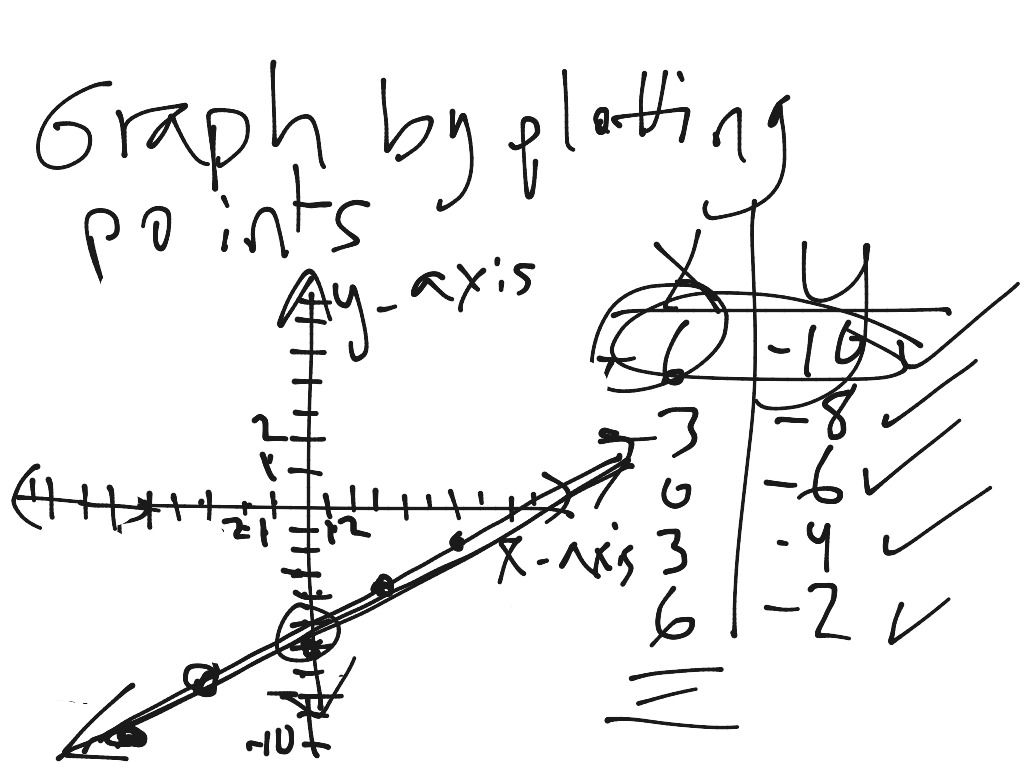 Graph by plotting
points
y-axis
x y
-6 -10
-3 -8
0 -6
3 -4
6 -2
2
1
-2 -1 1 2
x-axis
-10